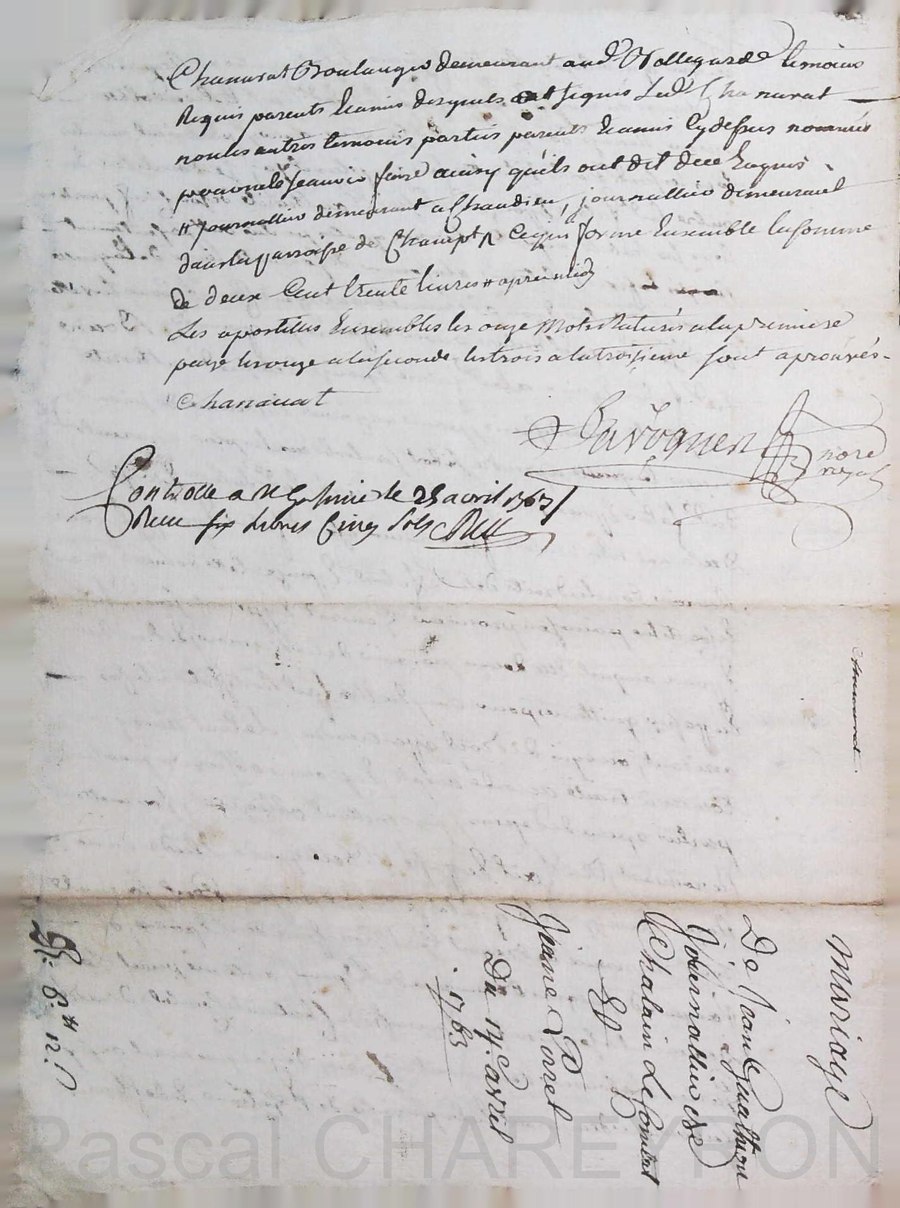 Chanurat Boulanger demeurant aud. Vallegarde temoins
Requis parents & amis desquels ont signés led. Chanurat
non les autres temoins parties parents & amis cy dessus nommés
pour ne le scavoir faire ainsy qu'ils ont dit de ce Enquis
# journallier demeurant a Chandieu, journallier demeurant
dans la parroisse de Champt ce qui forme Ensemble la somme
de deux Cent trente livres # apres midy
Les apostilles Ensembles les onze Mots Raturés a la premiere
page les onze a la seconde les trois a la troisieme sont aprouvés
Chanurat
not.re
royal
Controlle a le 25 avril 1763
Receu six Livres Cinq Sols
Chanurat
Mariage
De Jean
Journallier de
Chalain le Comtal
&
Jeane
Du 14e avril
1763